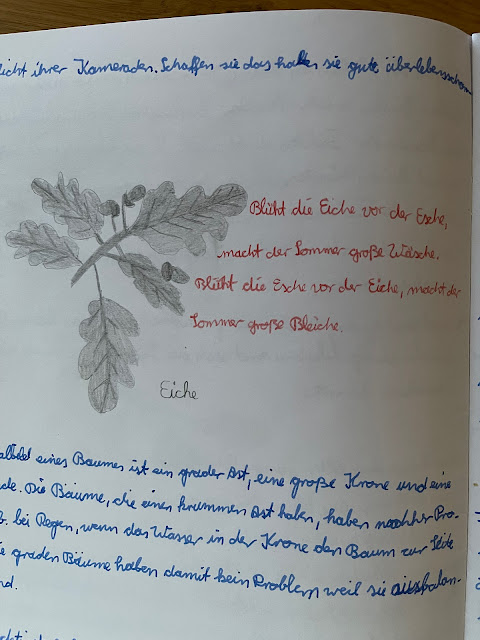 licht ihrer Kameraden. Schaffen sie das haben sie gute überlebenschan
Blüht die Eiche vor der Esche,
macht der Sommer große Wäsche.
Blüht die Esche vor der Eiche, macht der
Sommer große Bleiche.
Eiche
eines Baumes ist ein grader Ast, eine große Krone und eine
de. Die Bäume, die einen krummen Ast haben, haben nachher Pro-
B. bei Regen, wenn das Wasser in der Krone den Baum zur Seite
graden Bäume haben damit kein Problem weil sie ausbalan-
nd.